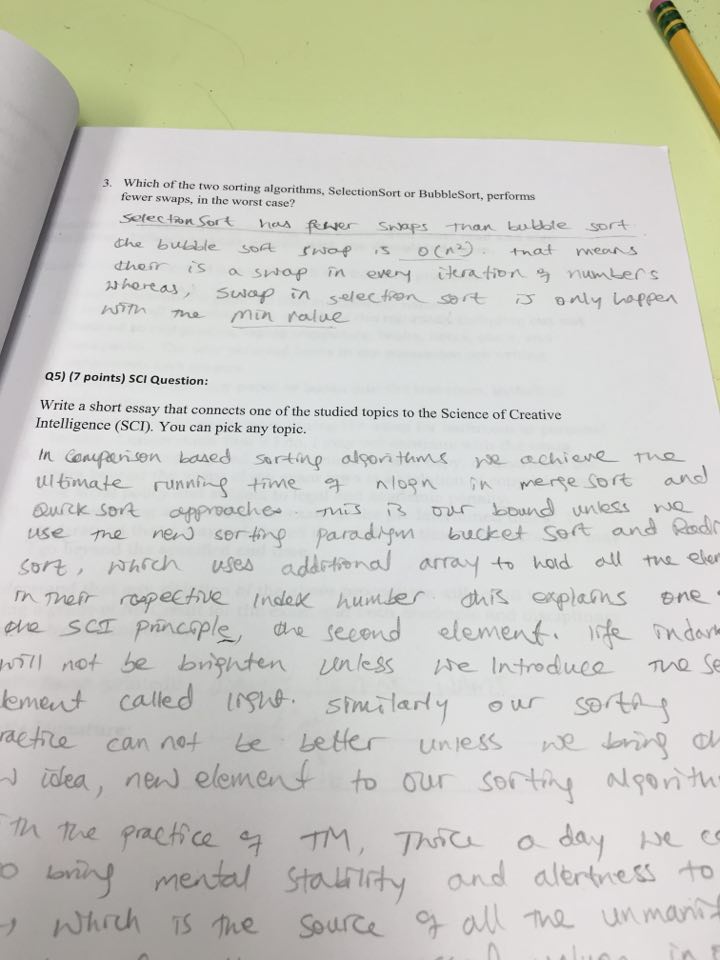 3. Which of the two sorting algorithms, SelectionSort or BubbleSort, performs
fewer swaps, in the worst case?
Selection Sort has fewer swaps than bubble sort
the bubble sort swap is O(n²). that means
their is a swap in every iteration of numbers
whereas, swap in selection sort is only happen
with the min value
Q5) (7 points) SCI Question:
Write a short essay that connects one of the studied topics to the Science of Creative
Intelligence (SCI). You can pick any topic.
In Comparison based sorting algorithms we achieve the
ultimate running time of nlogn in merge sort and
Quick sort approaches. This is our bound unless we
use the new sorting paradigm bucket sort and
sort, which uses additional array to hold all the
in their respective index number. this explains one
the SCI principle, the second element. life in
will not be brighten unless we Introduce the
called light. similarly our sorting
can not be better unless we bring
idea, new element to our sorting
the practice of TM, Thice a day we
bring mental stability and alertness to
which is the source of all the